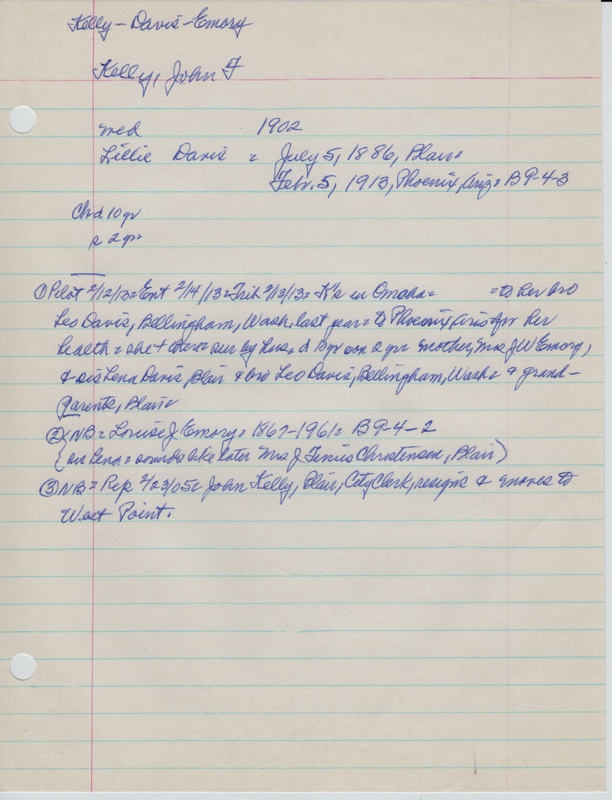 Kelly - Davis - Emory
Kelly, John F
med 1902
Lillie Davis = July 5, 1886, Blair =
Febr. 5, 1913, Phoenix, Ariz = B9-4-3
Chd 10 yr
& 2 yr =
① Pilot 2/12/13 = Ent 2/14/13 = Trib 2/13/13 = K's in Omaha = = to her bro
Leo Davis, Bellingham, Wash. last year = to Phoenix, Aris for her
health = she + there = sur by hus = d 10 yr son 2 yr = mother, Mrs J W Emory,
& sis Lena Davis, Blair & bro Leo Davis, Bellingham, Wash = & grand-
parents, Blair =
② NB = Louise J Emory = 1867-1961 = B9-4-2
( Lena = sounds like later Mrs J Tenus Christensen, Blair)
③ NB = Rep 2/23/05 = John Kelly, Blair, City Clerk, resigns & moves to
West Point.